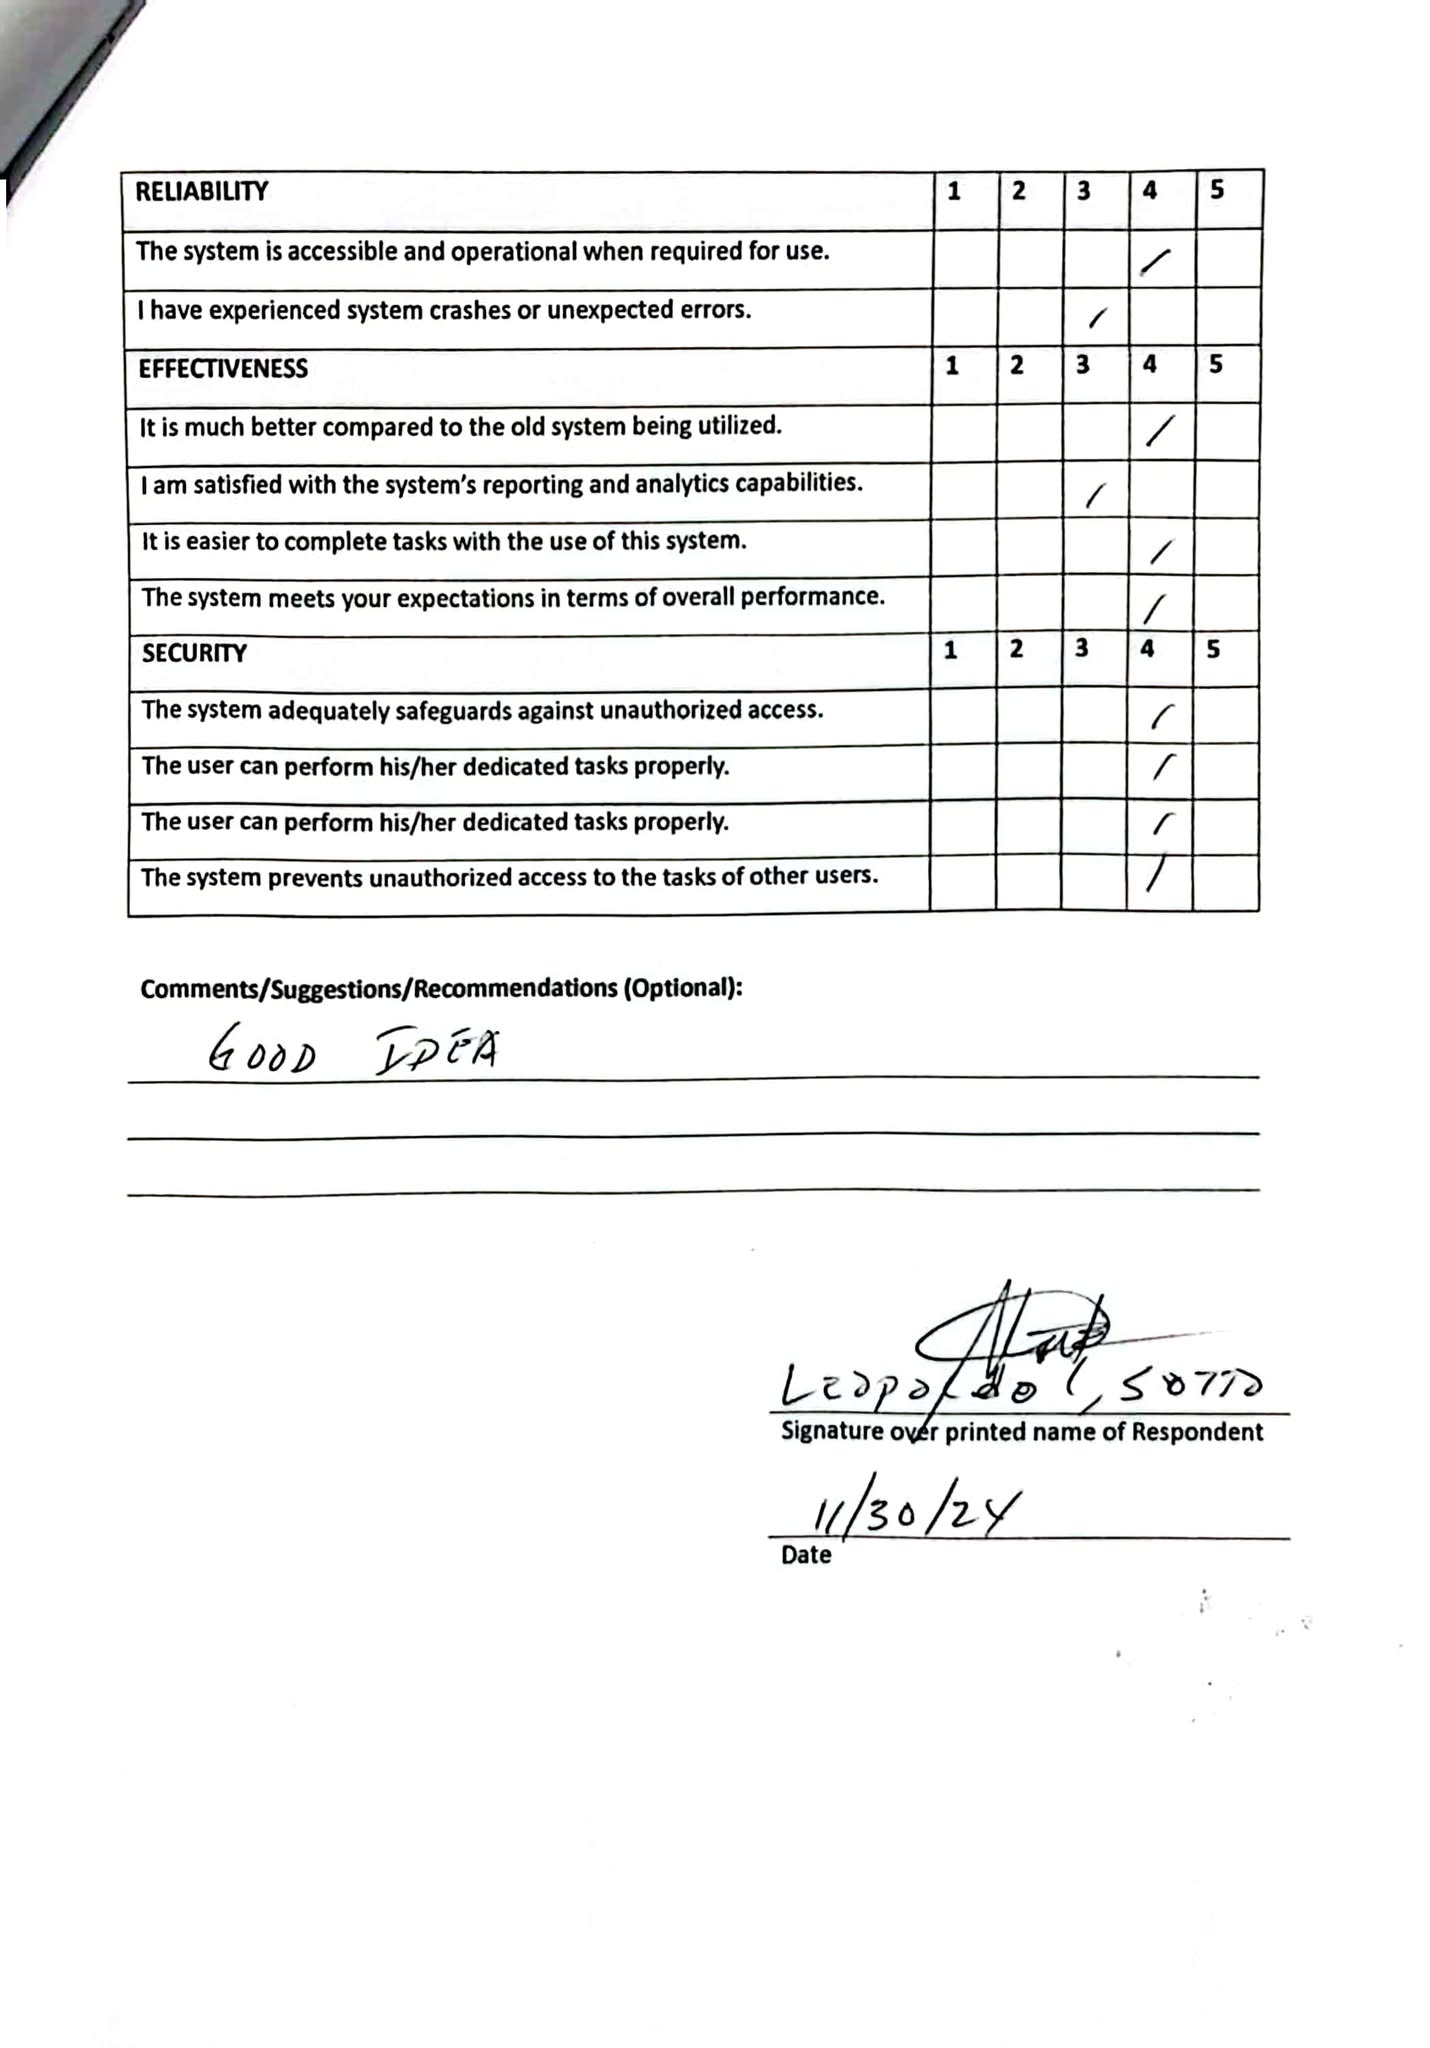 RELIABILITY 1 2 3 4 5
The system is accessible and operational when required for use. /
I have experienced system crashes or unexpected errors. /
EFFECTIVENESS 1 2 3 4 5
It is much better compared to the old system being utilized. /
I am satisfied with the system's reporting and analytics capabilities. /
It is easier to complete tasks with the use of this system. /
The system meets your expectations in terms of overall performance. /
SECURITY 1 2 3 4 5
The system adequately safeguards against unauthorized access. /
The user can perform his/her dedicated tasks properly. /
The user can perform his/her dedicated tasks properly. /
The system prevents unauthorized access to the tasks of other users. /
Comments/Suggestions/Recommendations (Optional):
GOOD IDEA
Leopoldo SOTTO
Signature over printed name of Respondent
11/30/24
Date